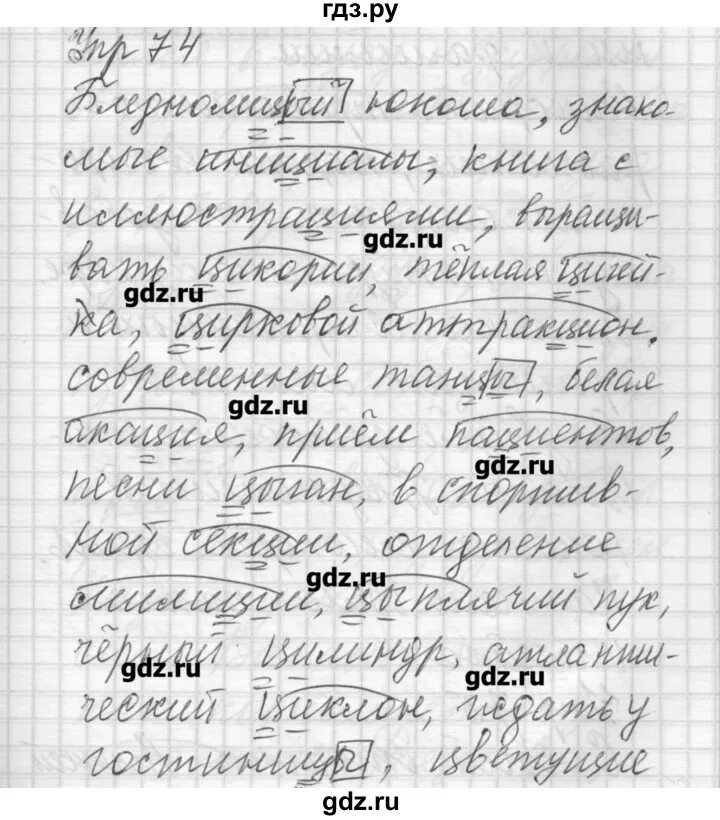 гдз.ру
Упр 74
Бледнолицый юноша, знако-
мые инициалы, книга с
иллюстрациями, выращи-
gdz.ru
вать цикории, тёплая цигей-
gdz.ru
ка, цирковой аттракцион,
современные танцы, белая
gdz.ru
акация, приём пациентов,
gdz.ru
песни цыган, в спортив-
ной секции, отделение
gdz.ru
милиции, цыплячий пух,
чёрный цилиндр, атланти-
gdz.ru
gdz.ru
ческий циклон, ждать у
гостиницы, цветущие
gdz.ru